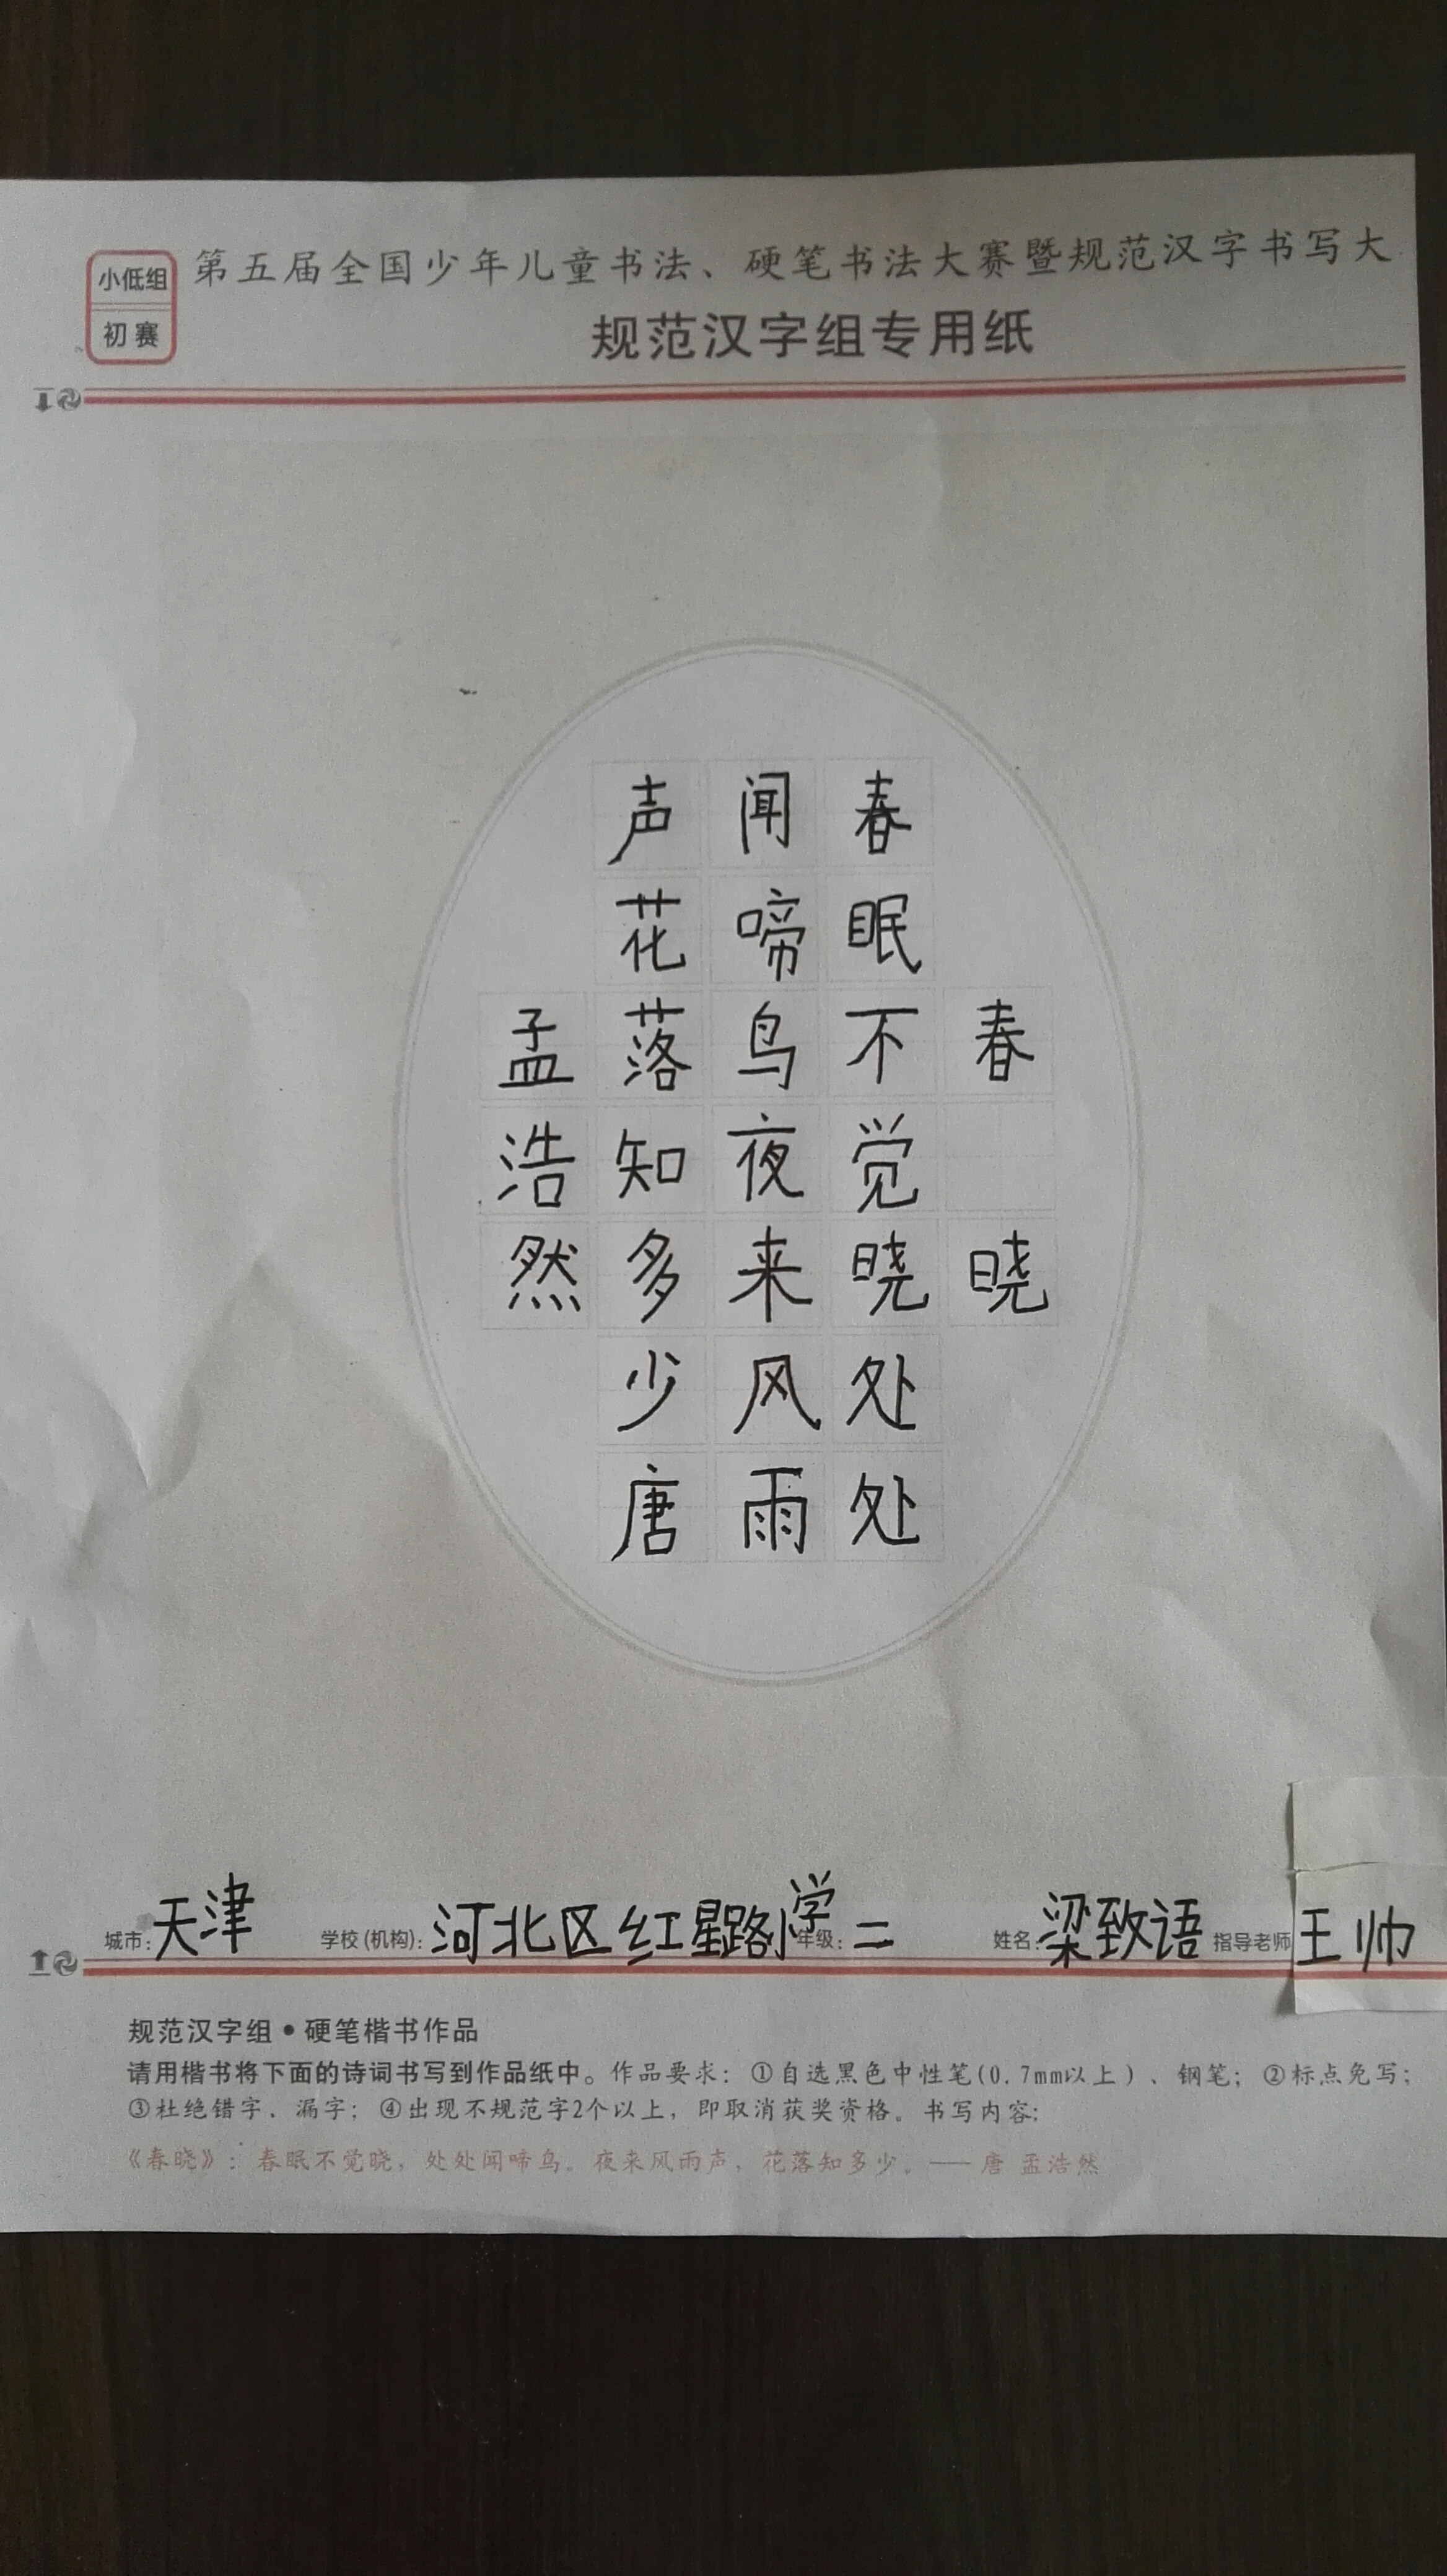 小低组
初赛
第五届全国少年儿童书法、硬笔书法大赛暨规范汉字书写大
规范汉字组专用纸
春晓
春眠不觉晓处处
闻啼鸟夜来风雨
声花落知多少唐
孟浩然
城市：天津 学校(机构)：河北区红星路小学 年级：二 姓名：梁致语 指导老师 王帅
规范汉字组•硬笔楷书作品
请用楷书将下面的诗词书写到作品纸中。作品要求：①自选黑色中性笔(0.7mm以上)、钢笔；②标点免写；
③杜绝错字、漏字；④出现不规范字2个以上，即取消获奖资格。书写内容：
《春晓》：春眠不觉晓，处处闻啼鸟。夜来风雨声，花落知多少。——唐 孟浩然